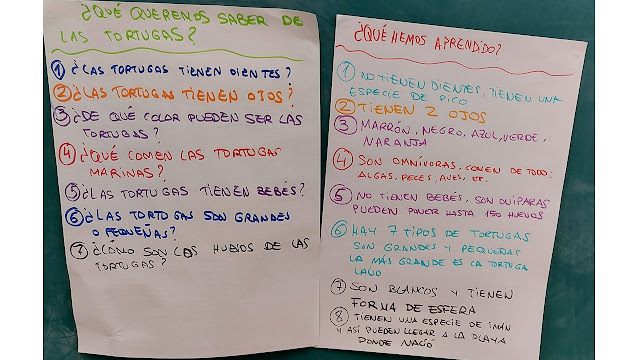 ¿QUÉ QUEREMOS SABER DE
LAS TORTUGAS?
1 ¿LAS TORTUGAS TIENEN DIENTES?
2 ¿LAS TORTUGAS TIENEN OJOS?
3 ¿DE QUÉ COLOR PUEDEN SER LAS
TORTUGAS?
4 ¿QUÉ COMEN LAS TORTUGAS
MARINAS?
5 ¿LAS TORTUGAS TIENEN BEBÉS?
6 ¿LAS TORTUGAS SON GRANDES
O PEQUEÑAS?
7 ¿CÓMO SON LOS HUEVOS DE LAS
TORTUGAS?
¿QUÉ HEMOS APRENDIDO?
1 NO TIENEN DIENTES, TIENEN UNA
ESPECIE DE PICO
2 TIENEN 2 OJOS
3 MARRÓN, NEGRO, AZUL, VERDE,
NARANJA
4 SON OMNÍVORAS. COMEN DE TODO:
ALGAS, PECES, AVES, ETC.
5 NO TIENEN BEBÉS, SON OVÍPARAS
PUEDEN PONER HASTA 150 HUEVOS
6 HAY 7 TIPOS DE TORTUGAS
SON GRANDES Y PEQUEÑAS
LA MÁS GRANDE ES LA TORTUGA
LAÚD
7 SON BLANCOS Y TIENEN
FORMA DE ESFERA
8 TIENEN UNA ESPECIE DE IMÁN
Y ASÍ PUEDEN LLEGAR A LA PLAYA
DONDE NACIÓ